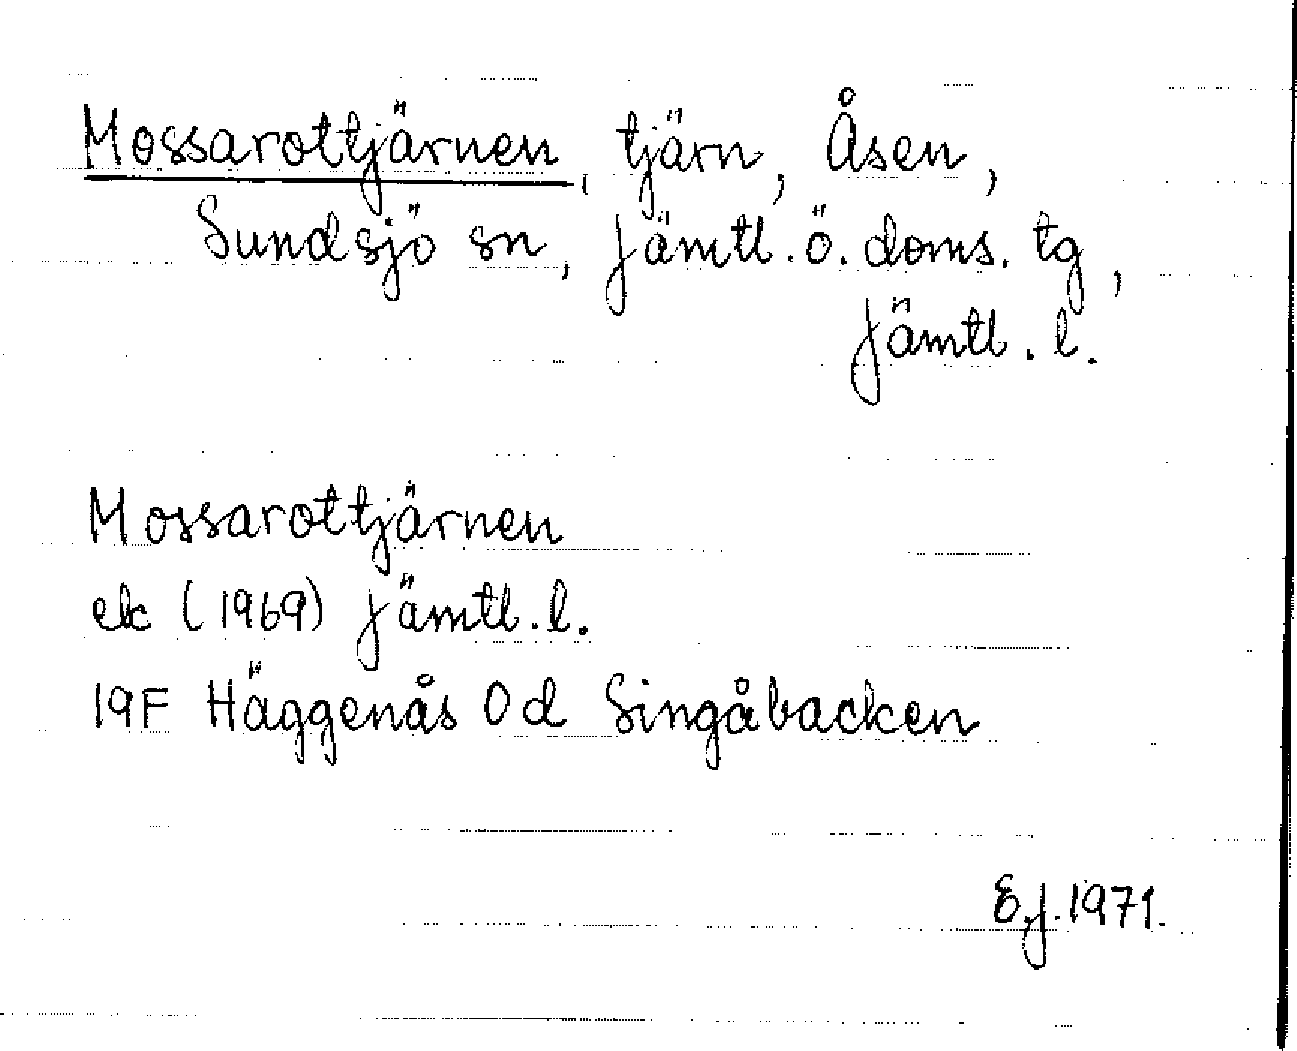 Mossarottjärnen, tjärn, Åsen,
Sundsjö sn, Jämtl. ö. doms. tg,
Jämtl. l.
Mossarottjärnen
ek (1969) Jämtl. l.
19F Häggenås 0d Singåbacken
E.J. 1971.